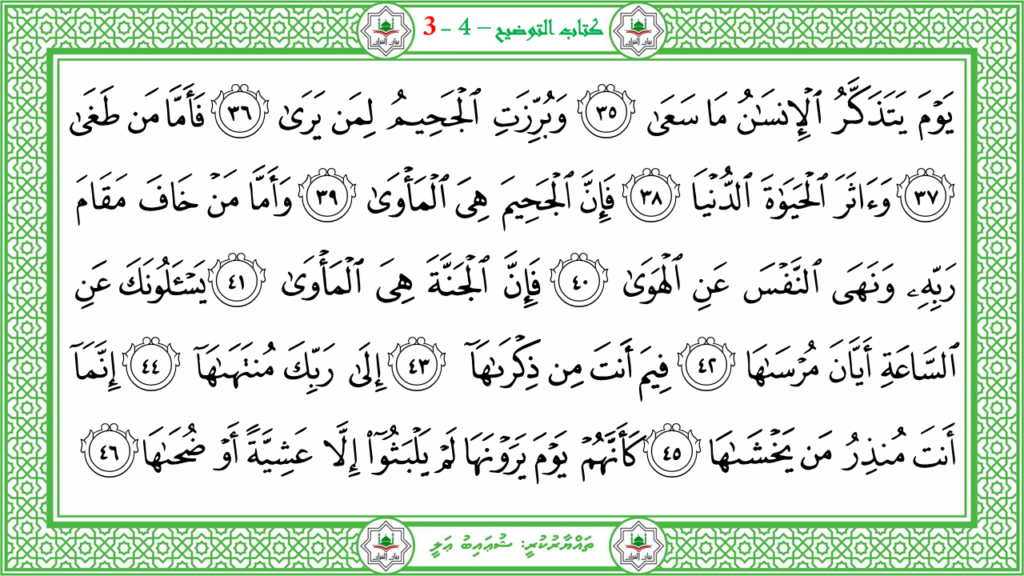 كتاب التوضيح – 4 - 3
يَوْمَ يَتَذَكَّرُ ٱلْإِنسَٰنُ مَا سَعَىٰ ٣٥ وَبُرِّزَتِ ٱلْجَحِيمُ لِمَن يَرَىٰ ٣٦ فَأَمَّا مَن طَغَىٰ
٣٧ وَءَاثَرَ ٱلْحَيَوٰةَ ٱلدُّنْيَا ٣٨ فَإِنَّ ٱلْجَحِيمَ هِىَ ٱلْمَأْوَىٰ ٣٩ وَأَمَّا مَنْ خَافَ مَقَامَ
رَبِّهِۦ وَنَهَى ٱلنَّفْسَ عَنِ ٱلْهَوَىٰ ٤٠ فَإِنَّ ٱلْجَنَّةَ هِىَ ٱلْمَأْوَىٰ ٤١ يَسْـَٔلُونَكَ عَنِ
ٱلسَّاعَةِ أَيَّانَ مُرْسَىٰهَا ٤٢ فِيمَ أَنتَ مِن ذِكْرَىٰهَآ ٤٣ إِلَىٰ رَبِّكَ مُنتَهَىٰهَآ ٤٤ إِنَّمَآ
أَنتَ مُنذِرُ مَن يَخْشَىٰهَا ٤٥ كَأَنَّهُمْ يَوْمَ يَرَوْنَهَا لَمْ يَلْبَثُوٓا۟ إِلَّا عَشِيَّةً أَوْ ضُحَىٰهَا ٤٦
ތައްޔާރުކުރީ: ޝުޢައިބު ޢަލީ